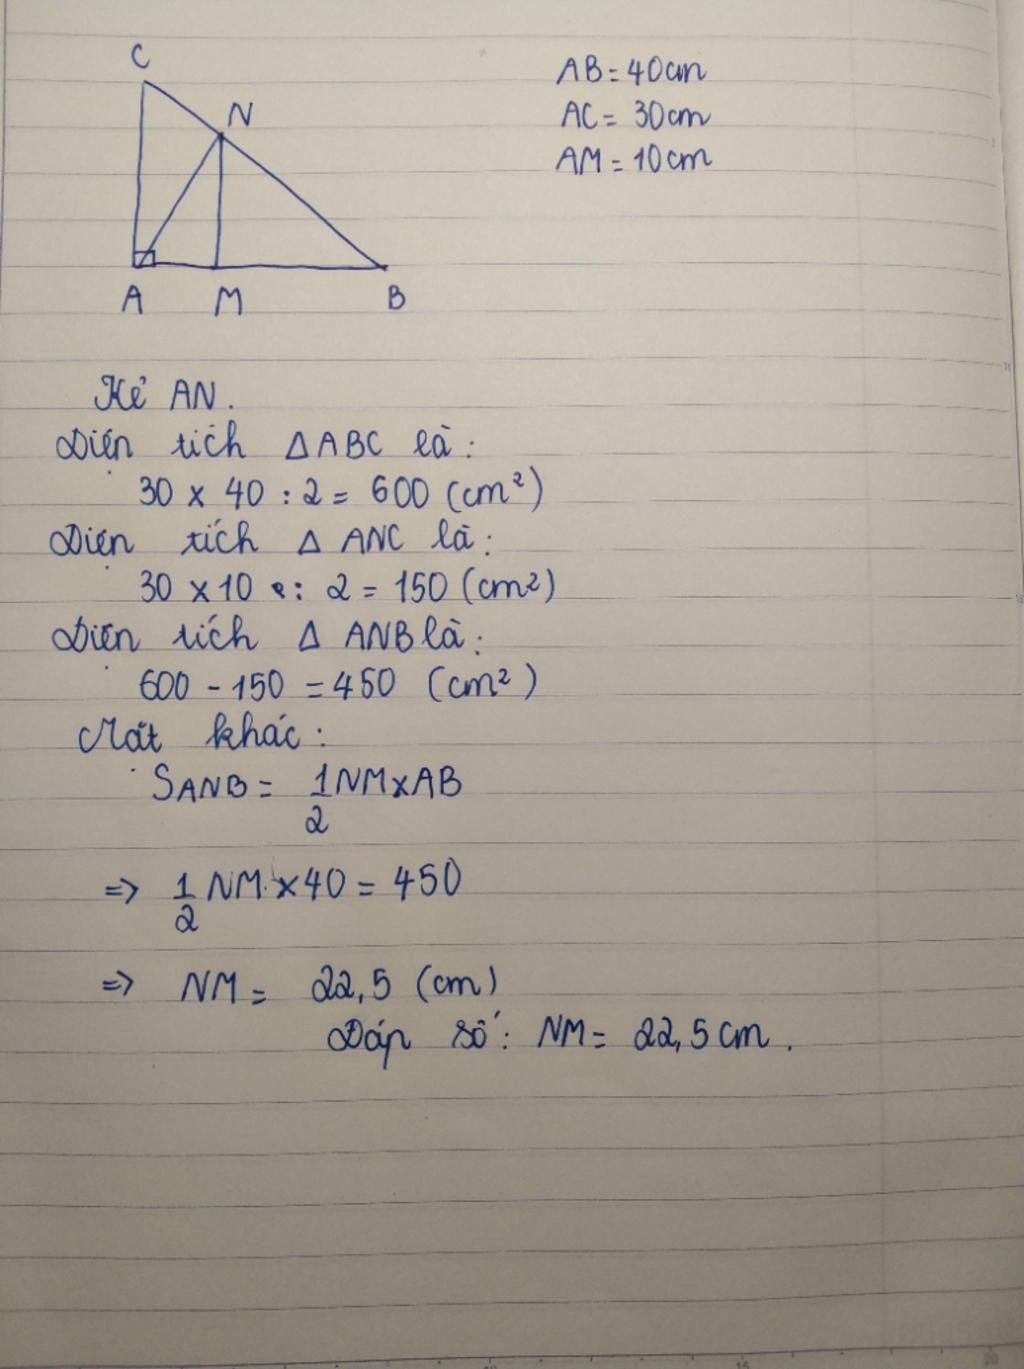 C
N
A
M
B
AB = 40cm
AC = 30cm
AM = 10cm
Kẻ AN.
Diện tích △ABC là:
30 x 40 : 2 = 600 (cm²)
Diện tích △ ANC là:
30 x 10 : 2 = 150 (cm²)
Diện tích △ ANB là:
600 - 150 = 450 (cm²)
Mặt khác:
SANB = 1/2 NM x AB
=> 1/2 NM x 40 = 450
=> NM = 22,5 (cm)
Đáp số: NM = 22,5cm.